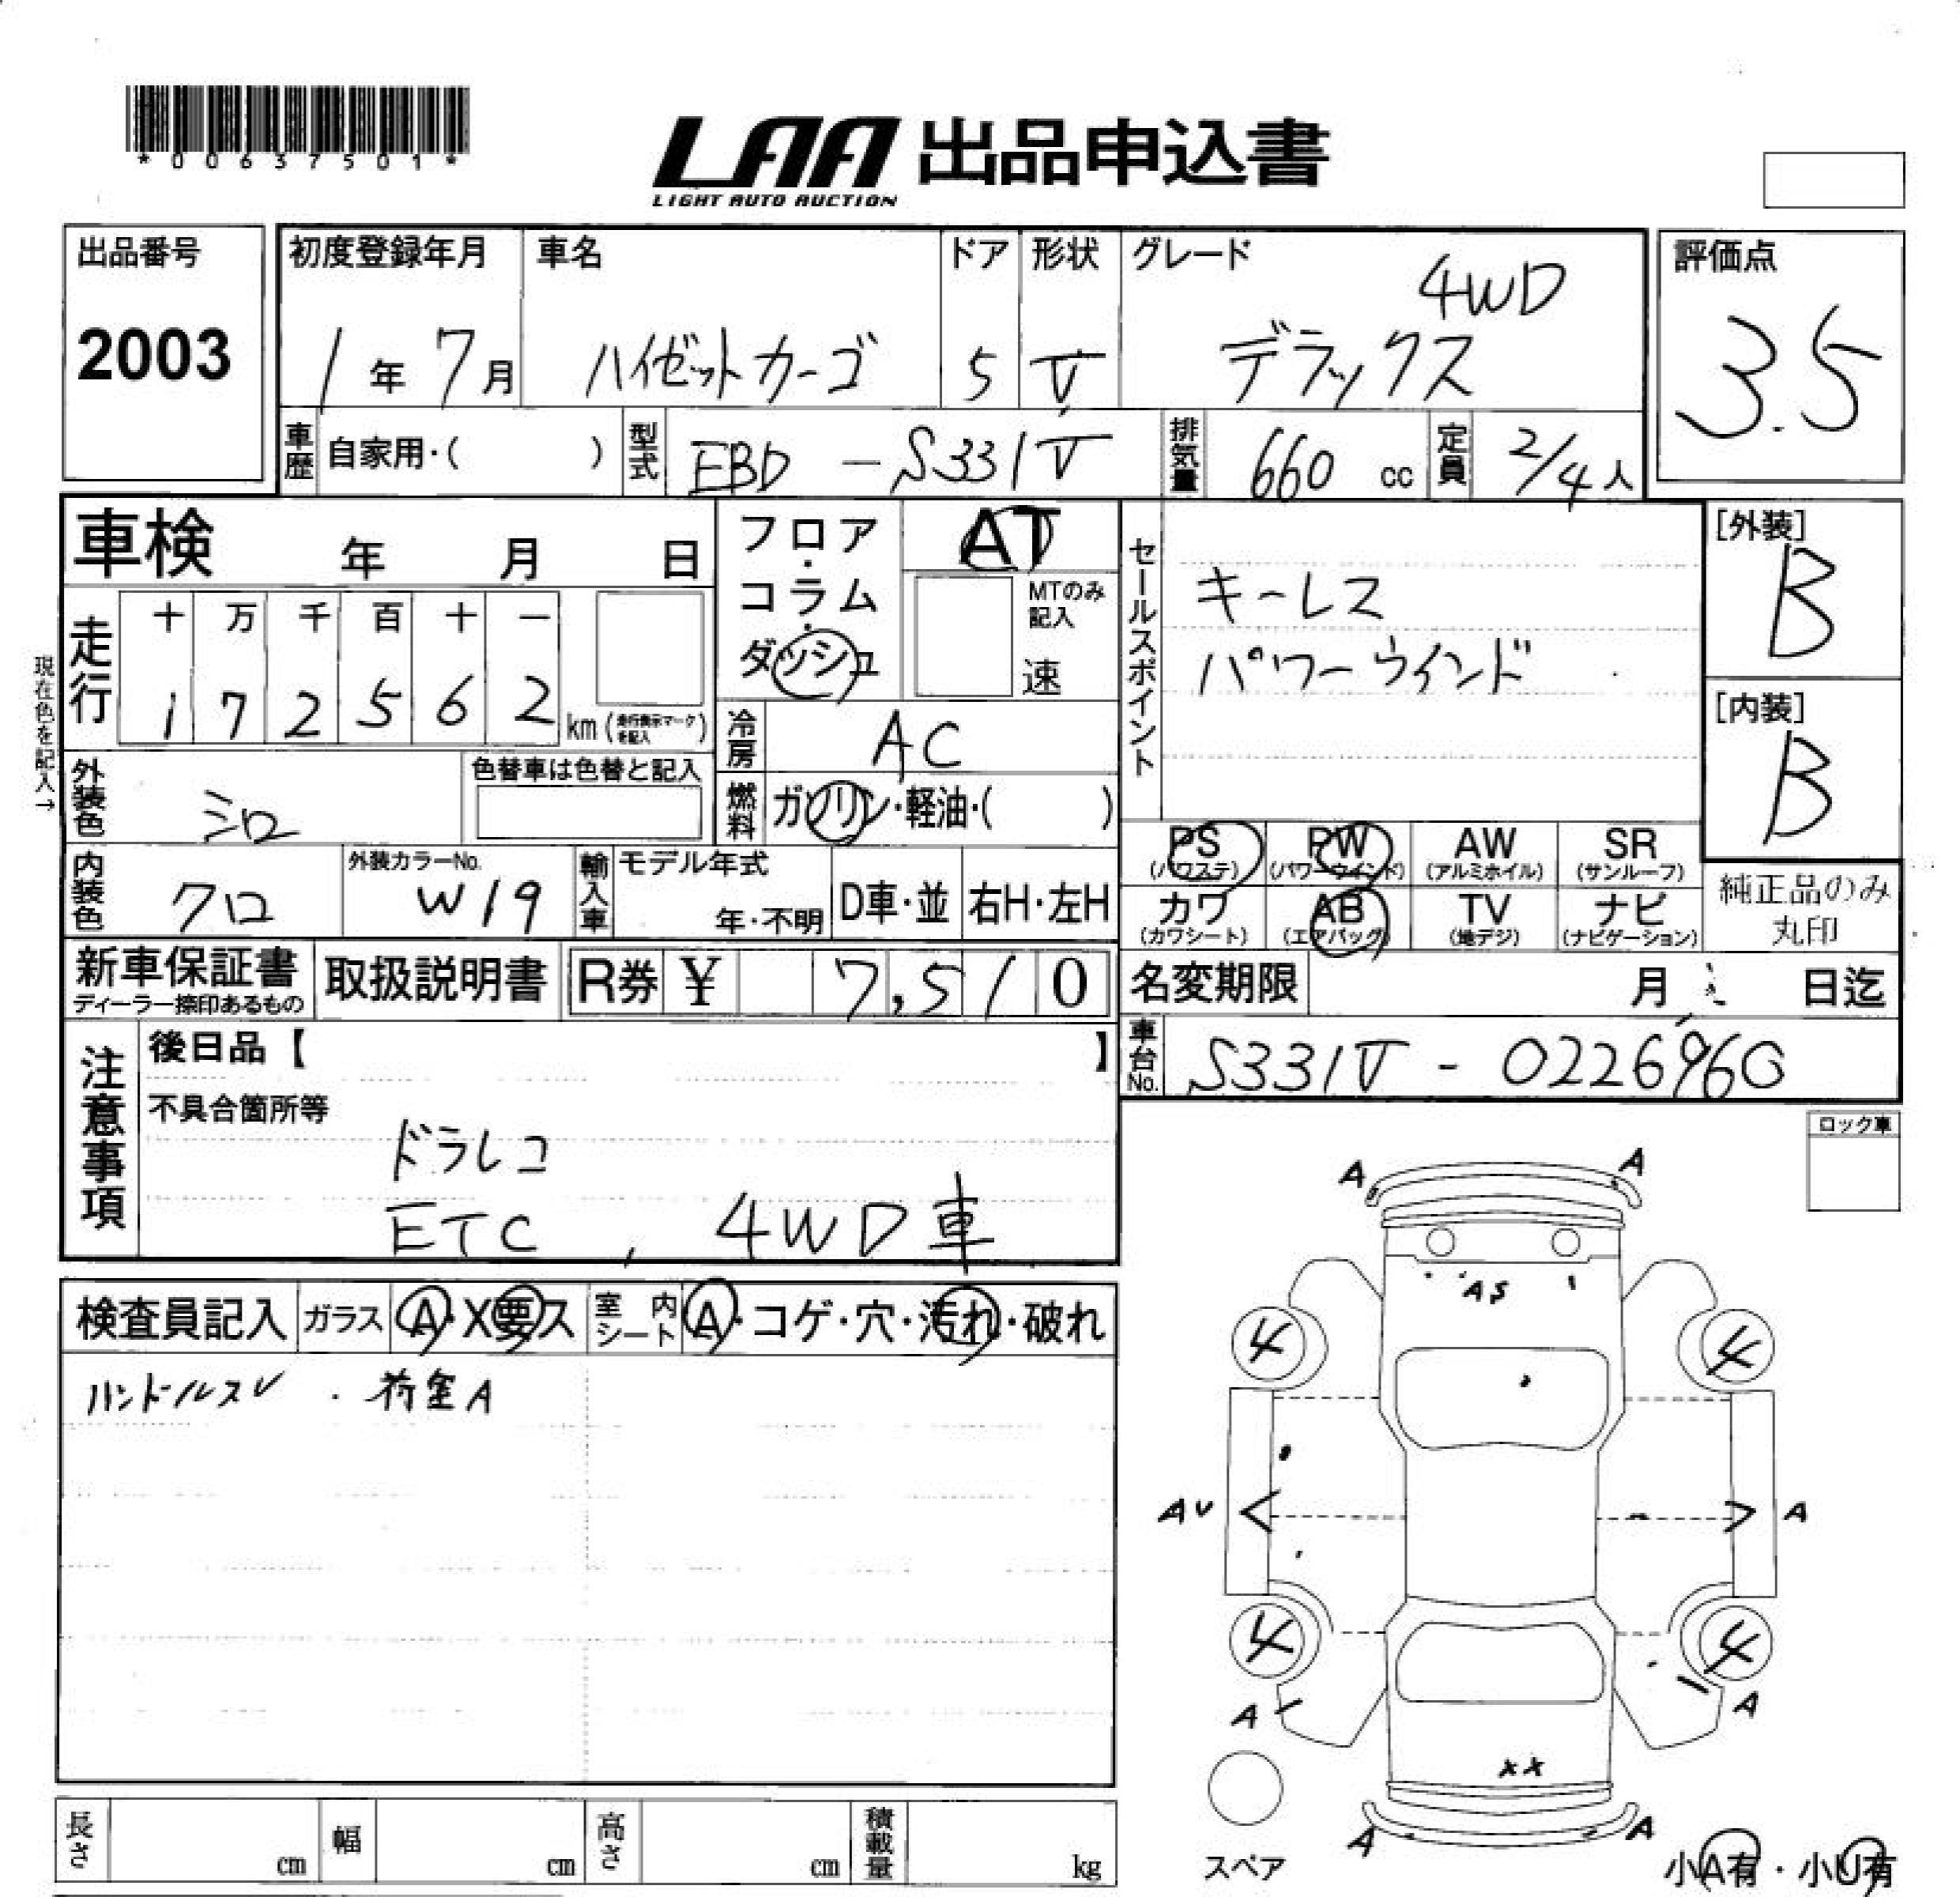 *00637501*
LAA 出品申込書
LIGHT AUTO AUCTION
出品番号
2003
初度登録年月
1年7月
車名
ハイゼットカーゴ
ドア
5
形状
V
グレード
4WD
デラックス
評価点
3.5
車歴 自家用・( )
型式 EBD - S331V
排気量 660 cc
定員 2/4人
車検 年 月 日
フロア・コラム・ダッシュ
AT
MTのみ記入
速
走行
十 万 千 百 十 一
1 7 2 5 6 2 km (走行表示マークを記入)
現在色を記入→
冷房 AC
外装色 シロ
色替車は色替と記入
燃料 ガソリン・軽油・( )
内装色 クロ
外装カラーNo.
W19
輸入車 モデル年式
年・不明
D車・並
右H・左H
セールスポイント
キーレス
パワーウインド
[外装]
B
[内装]
B
PS (パワステ)
PW (パワーウインド)
AW (アルミホイル)
SR (サンルーフ)
カワ (カワシート)
AB (エアバッグ)
TV (地デジ)
ナビ (ナビゲーション)
純正品のみ
丸印
新車保証書
ディーラー捺印あるもの
取扱説明書
R券 ¥ 7,510
名変期限 月 日迄
車台No. S331V - 0226960
注意事項
後日品【 】
不具合箇所等
ドラレコ
ETC , 4WD車
ロック車
検査員記入 ガラス A・X要ス
室内シート A・コゲ・穴・汚れ・破れ
ハンドルスレ ・ 荷室A
A A
AS
4 4
AV A
4 4
A A
XX
A A
スペア
小A有・小U有
長さ cm
幅 cm
高さ cm
積載量 kg